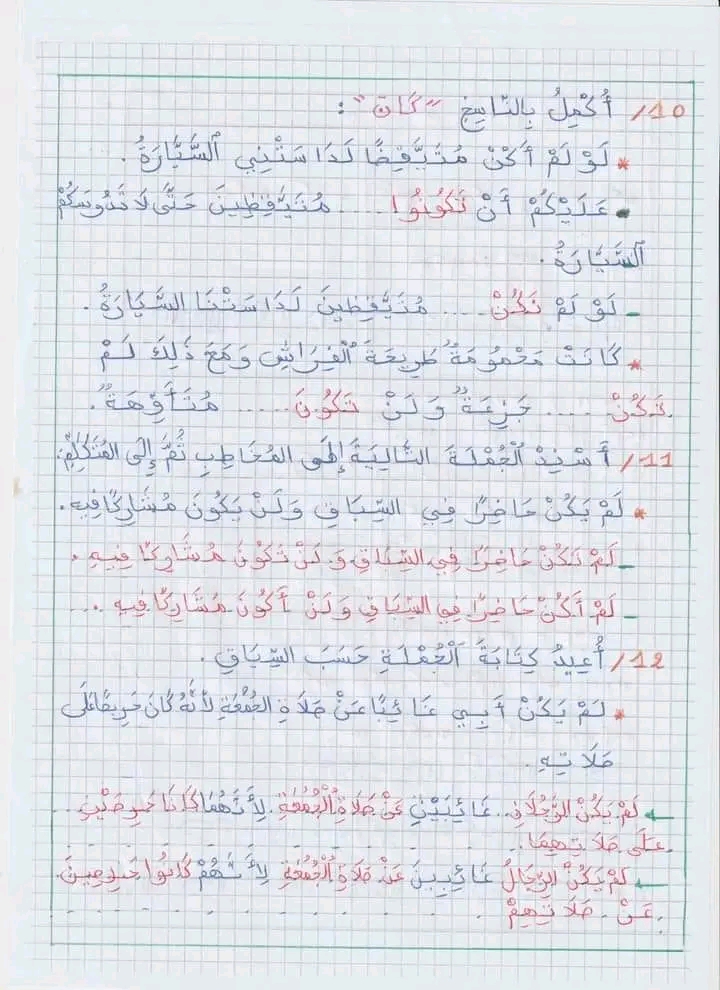 10/ أُكْمِلُ بِالنَّاسِخِ "كَانَ":
* لَوْ لَمْ أَكُنْ مُتَيَقِّضًا لَدَاسَتْنِي السَّيَّارَةُ.
- عَلَيْكُمْ أَنْ تَكُونُوا .... مُتَيَقِّظِينَ حَتَّى لَا تَدُوسَكُمْ
السَّيَّارَةُ.
- لَوْ لَمْ نَكُنْ .... مُتَيَقِّظِينَ لَدَاسَتْنَا السَّيَّارَةُ.
* كَانَتْ مَحْمُومَةً طَرِيحَةَ الْفِرَاشِ وَمَعَ ذَلِكَ لَمْ
تَكُنْ .... جَزِعَةً وَلَنْ تَكُونَ .... مُتَأَوِّهَةً.
11/ أُسْنِدُ الْجُمْلَةَ التَّالِيَةَ إِلَى المُخَاطِبِ ثُمَّ إِلَى المُتَكَلِّمِ:
* لَمْ يَكُنْ حَاضِرًا فِي السِّبَاقِ وَلَنْ يَكُونَ مُشَارِكًا فِيهِ.
- لَمْ تَكُنْ حَاضِرًا فِي السِّبَاقِ وَلَنْ تَكُونَ مُشَارِكًا فِيهِ.
- لَمْ أَكُنْ حَاضِرًا فِي السِّبَاقِ وَلَنْ أَكُونَ مُشَارِكًا فِيهِ ...
12/ أُعِيدُ كِتَابَةَ الْجُمْلَةِ حَسَبَ السِّيَاقِ.
* لَمْ يَكُنْ أَبِي غَائِبًا عَنْ صَلَاةِ الجُمُعَةِ لِأَنَّهُ كَانَ حَرِيصًا عَلَى
صَلَاتِهِ.
← لَمْ يَكُنْ الرَّجُلَانِ .. غَائِبَيْنِ عَنْ صَلَاةِ الْجُمُعَةِ. لِأَنَّهُمَا كَانَا حَرِيصَيْنِ ..
عَلَى صَلَاتِهِمَا.
← لَمْ يَكُنْ الرِّجَالُ غَائِبِينَ عَنْ صَلَاةِ الْجُمُعَةِ لِأَنَّهُمْ كَانُوا حَرِيصِينَ
عَنْ. صَلَاتِهِمْ